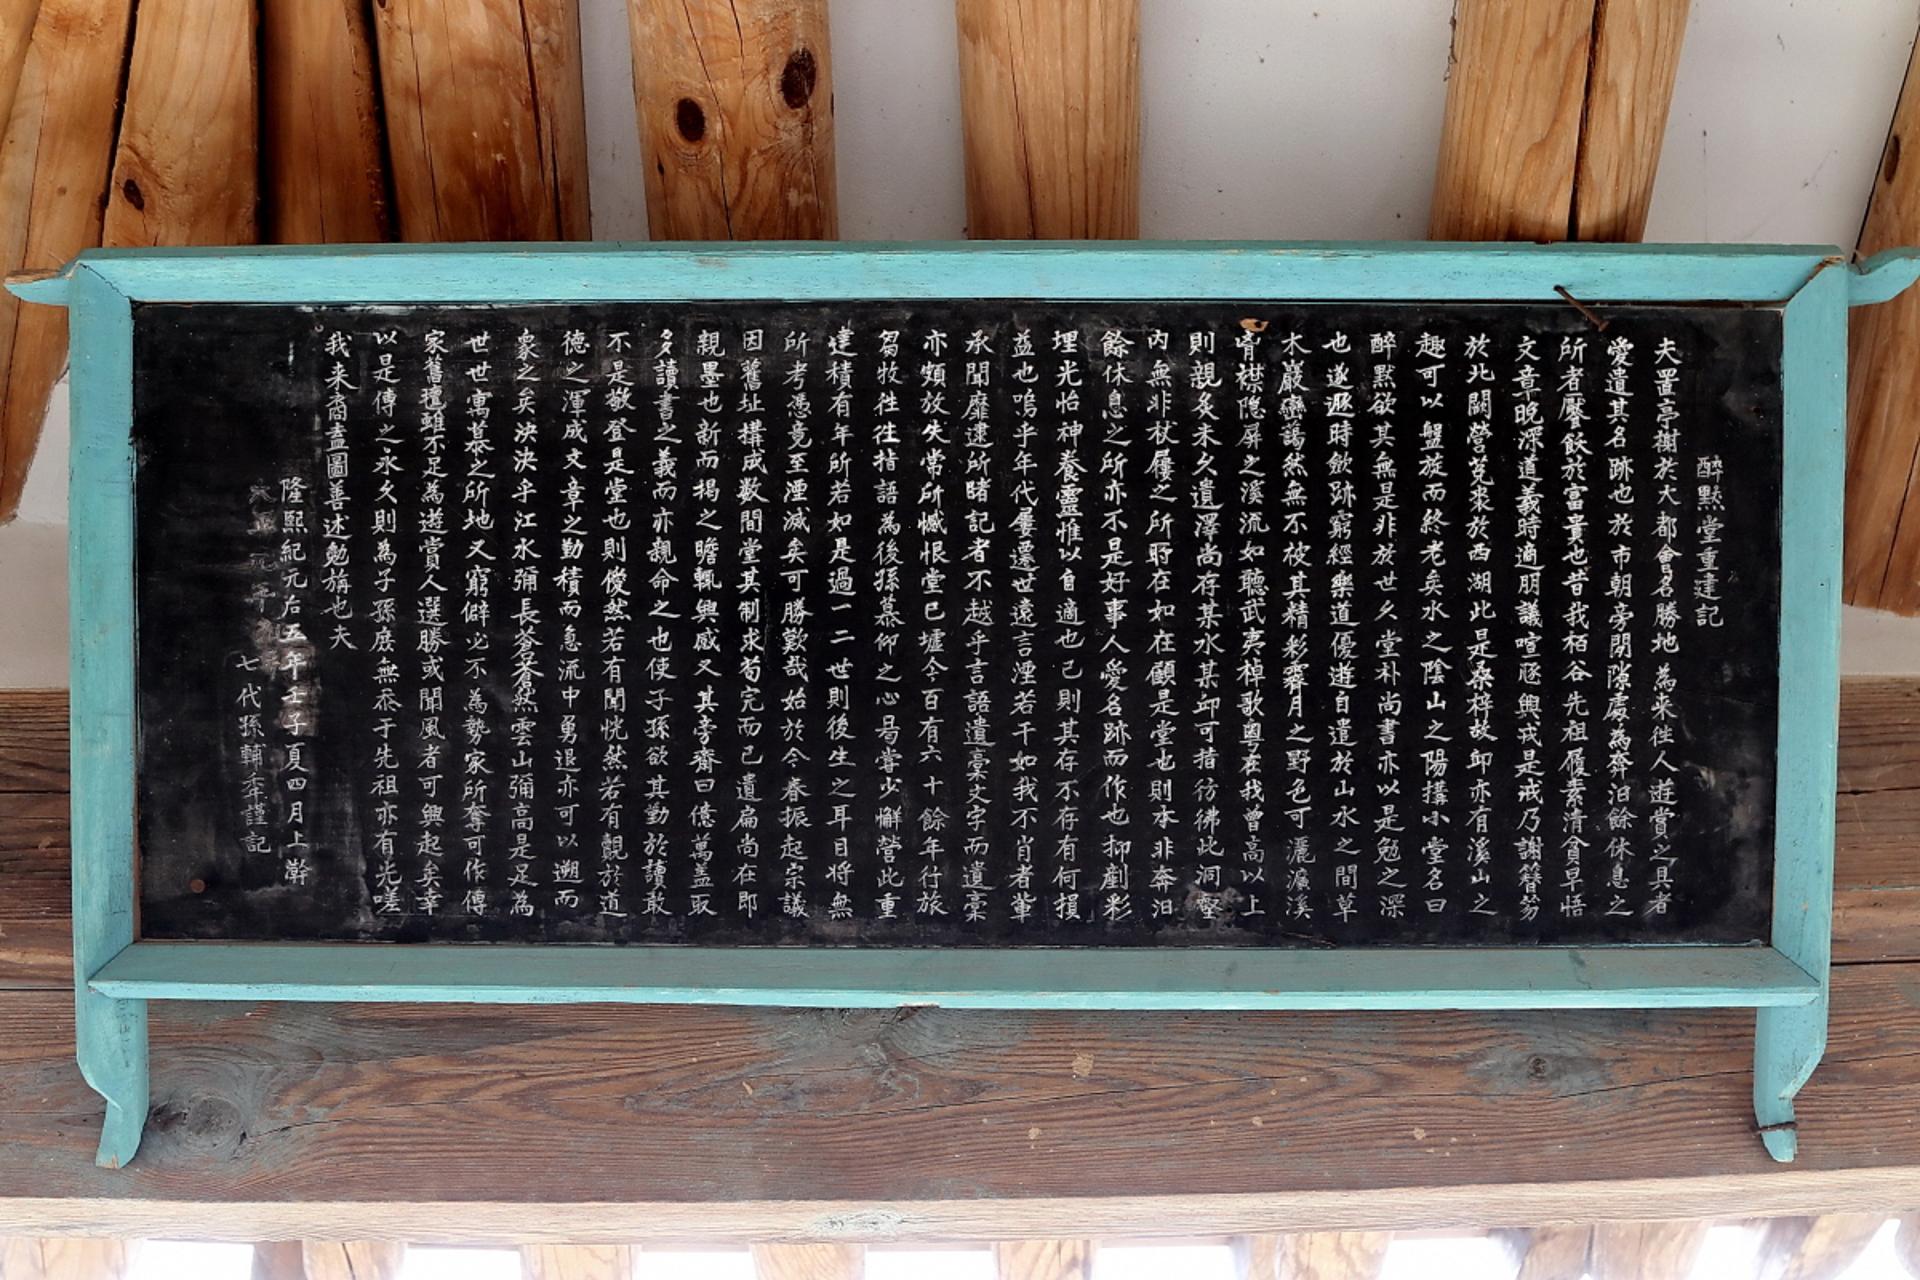 醉默堂重建記
夫置亭榭於大都會名勝地為来徃人遊賞之具者
愛遺其名跡也於市朝旁閒隙處為奔汨餘休息之
所者饜飫於富貴也昔我栢谷先祖履素清貧早悟
文章晚深道義時適朋議喧豗興戎是戒乃謝簪笏
於北闕營菟裘於西湖此是桑梓故邱亦有溪山之
趣可以盤旋而終老矣水之陰山之陽搆小堂名曰
醉默欲其無是非於世久堂朴尚書亦以是勉之深
也遂遯時斂跡窮經樂道優遊自遣於山水之間草
木巖巒藹然無不被其精彩霽月之野色可灑濂溪
胷襟隠屏之溪流如聽武夷棹歌粤在我曾高以上
則親炙未久遺澤尚存某水某邱可指彷彿此洞壑
内無非杖屨之所時在如在顧是堂也則本非奔汨
餘休息之所亦不是好事人愛名跡而作也抑剷彩
埋光怡神養靈惟以自適也已則其存不存有何損
益也嗚乎年代屢遷世遠言湮若干如我不肖者輩
承聞靡逮所睹記者不越乎言語遺稾文字而遺稾
亦頻放失常所憾恨堂已墟今百有六十餘年行旅
芻牧徃徃指語為後孫慕仰之心曷嘗少懈營此重
建積有年所若如是過一二世則後生之耳目将無
所考憑竟至湮滅矣可勝歎哉始於今春振起宗議
因舊址搆成数間堂其制求苟完而已遺扁尚在即
親墨也新而揭之瞻輒興感又其旁齋曰億萬盖取
多讀書之義而亦親命之也使子孫欲其勤於讀敢
不是敬登是堂也則僾然若有聞恍然若有覩於道
徳之渾成文章之勤積而急流中勇退亦可以遡而
象之矣泱泱乎江水彌長蒼蒼然雲山彌高是足為
世世寓慕之所地又窮僻必不為勢家所奪可作傳
家舊氊雖不足為遊賞人選勝或聞風者可興起矣幸
以是傳之永久則為子孫庶無忝于先祖亦有光嗟
我来裔盍圖善述勉旃也夫
隆熙紀元后五年壬子夏四月上澣
七代孫輔秊謹記